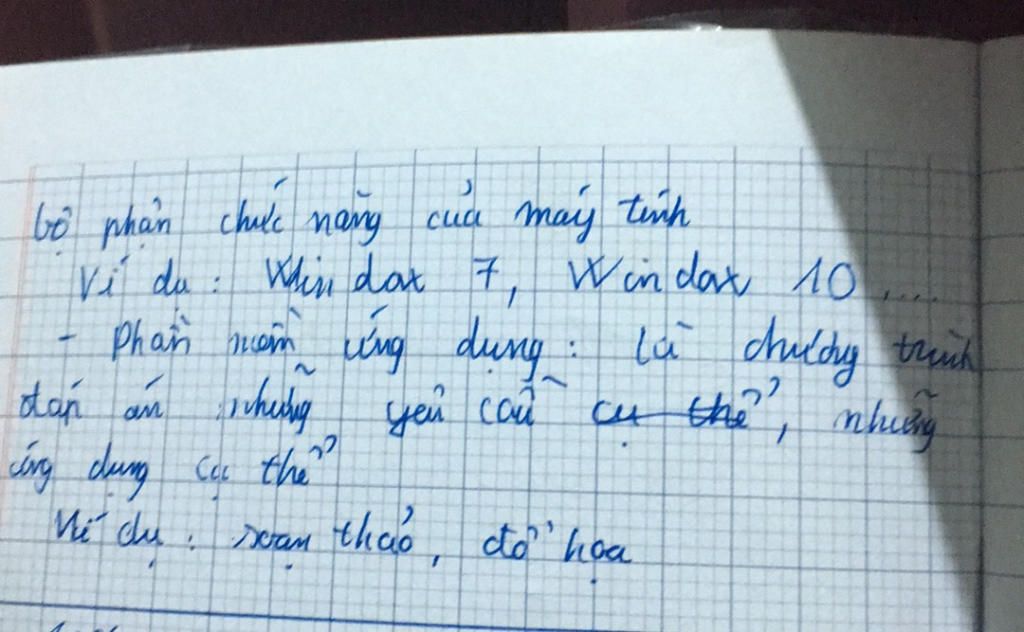 bộ phận chức năng của máy tính
Ví dụ: Windox 7, Windox 10,....
- Phần mềm ứng dụng: là chương trình
đáp án những yêu cầu cụ thể, những
ứng dụng cụ thể
Ví dụ: soạn thảo, đồ họa